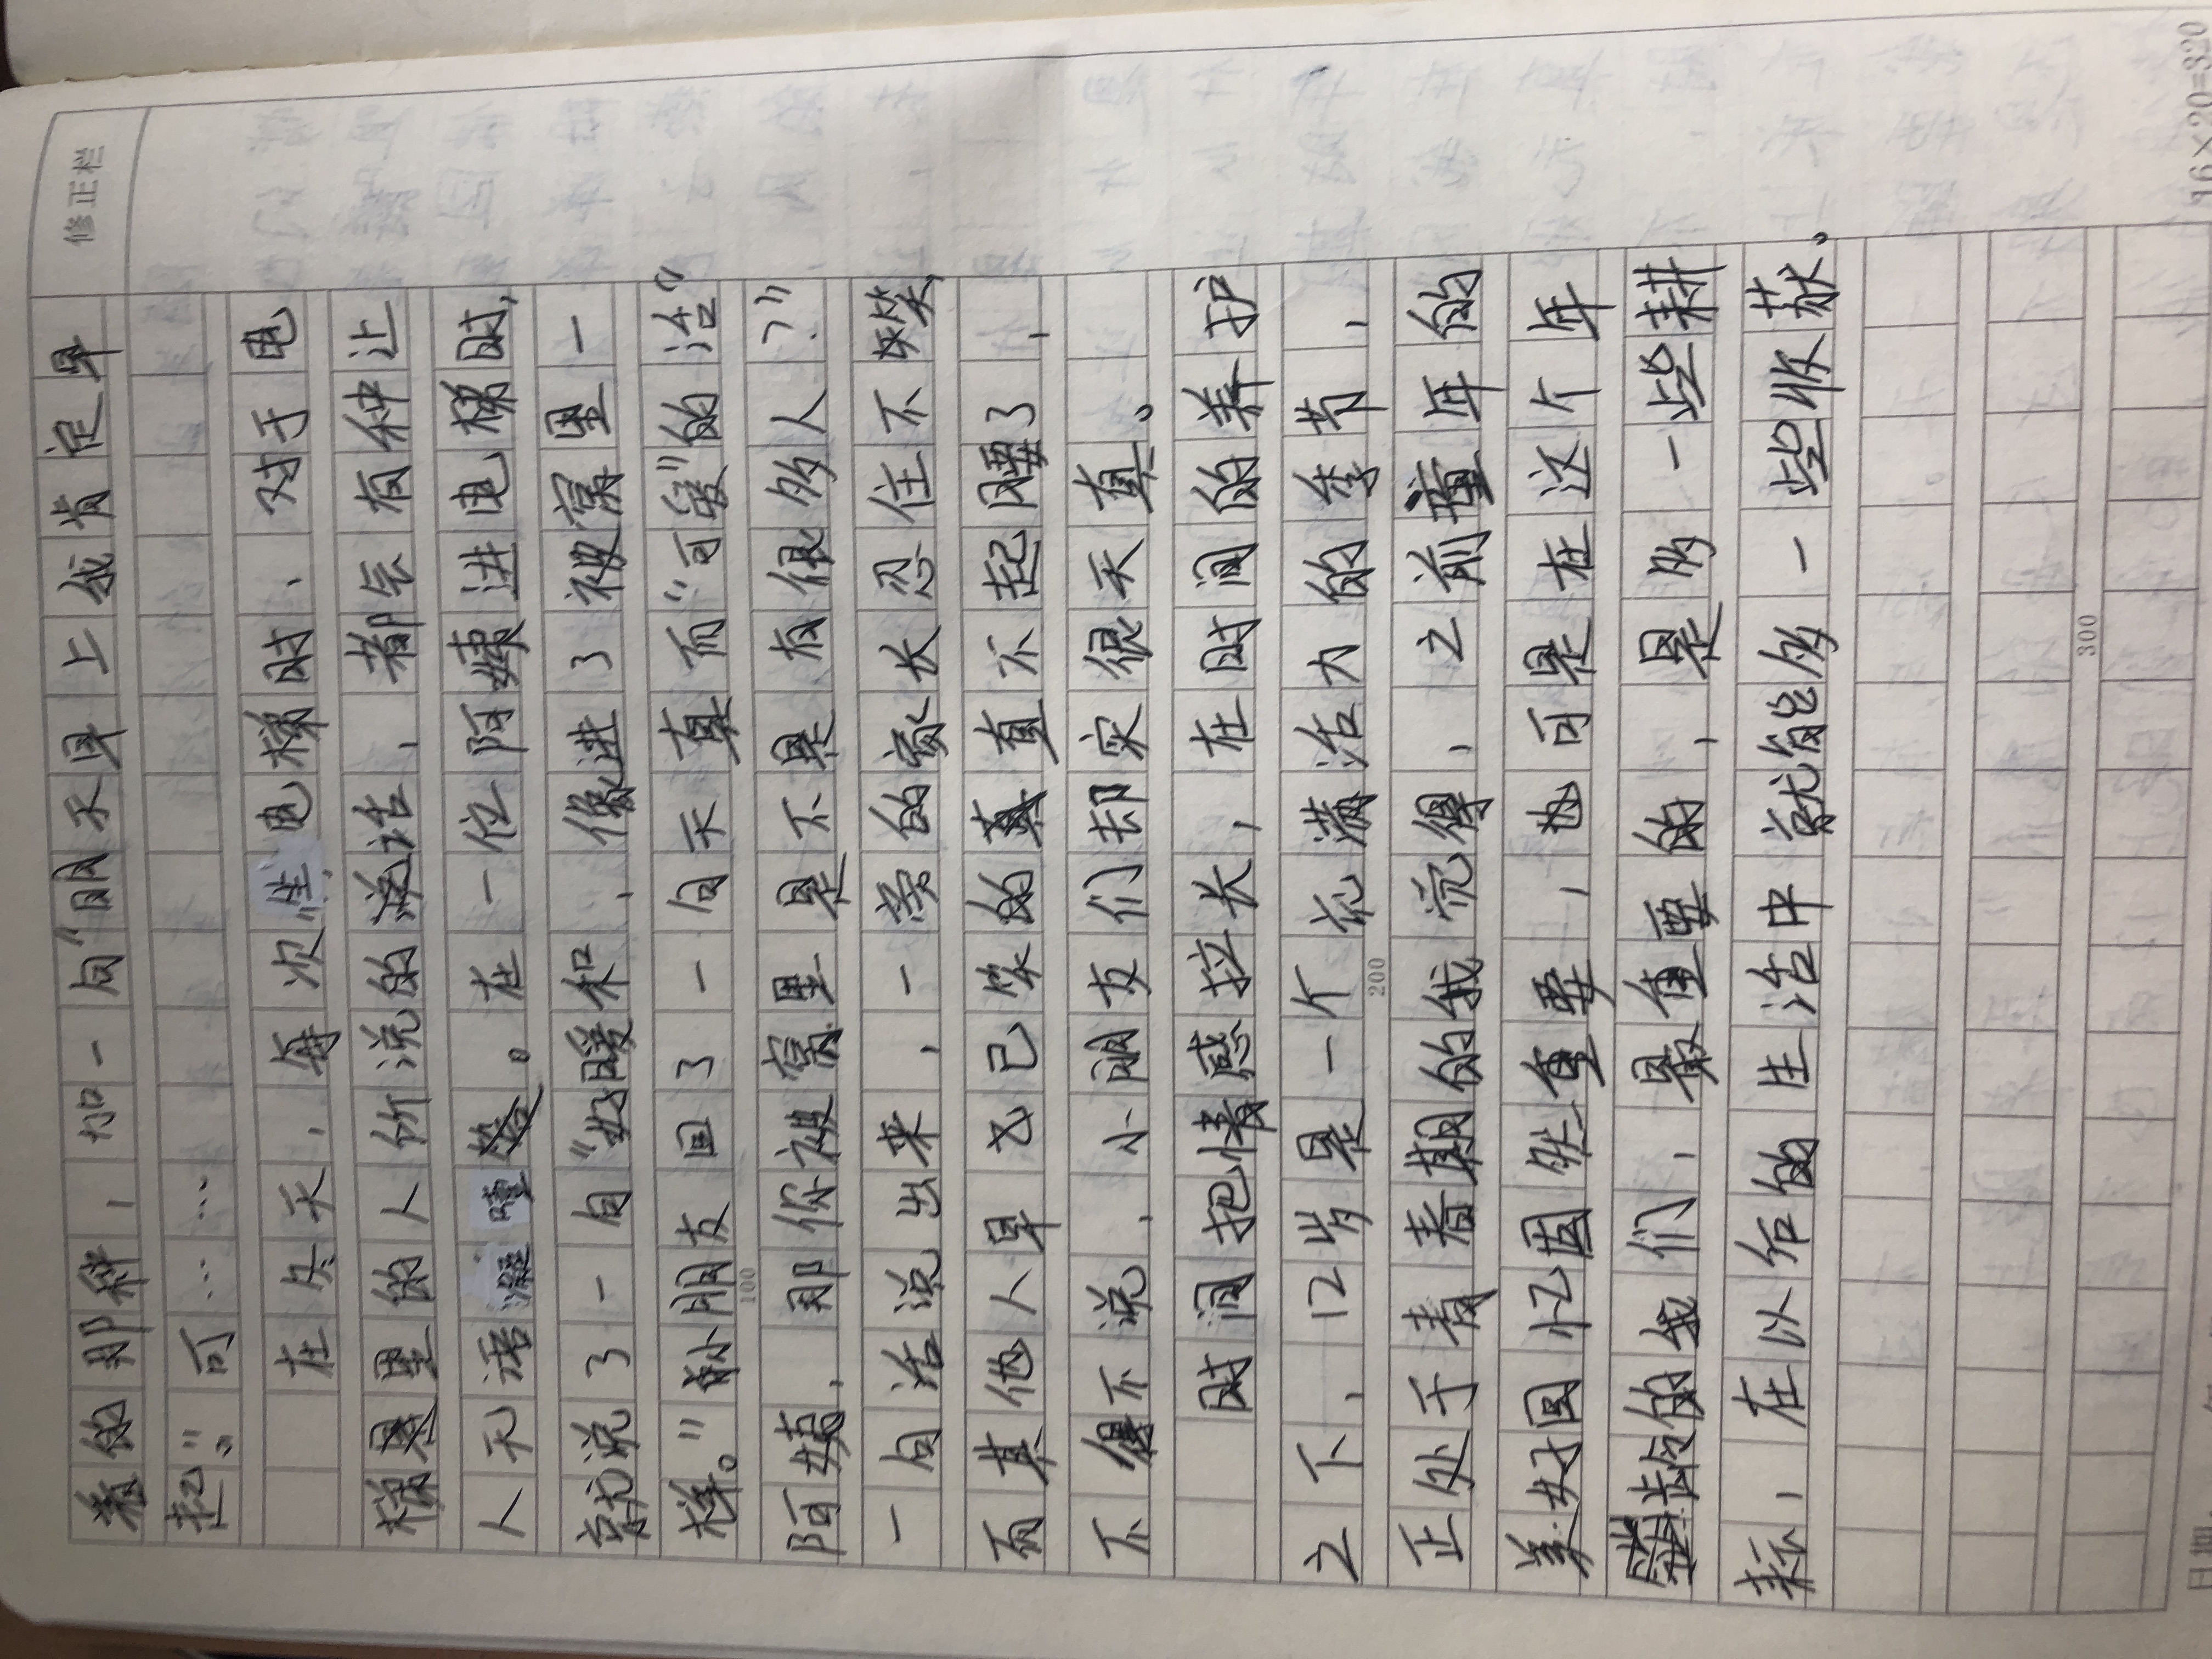 修正栏
着的那种，加一句“明天早上我肯定早
起”。可……
在冬天，每次坐电梯时、对于电
梯里的人们说的话，都会有种让
人无语凝噎。在一位阿姨进电梯时，
就说了一句“好暖和，像进了被窝里一
样。”小朋友回了一句天真而“可爱”的话“
阿姨，那你被窝里是不是有很多人？”
一句话说出来，一旁的家长忍不住笑，
而其他人早已笑的直不起腰了，
不得不说，小朋友们却实很天真。
时间把情感拉长，在时间的养护
之下，12岁是一个充满活力的季节，
正处于青春期的我觉得，之前童年的
美好回忆固然重要，也可是在这个年
龄的我们，最重要的，是多一些耕
耘，在以后的生活中就能多一些收获。
100
200
300
16×20=320
日期